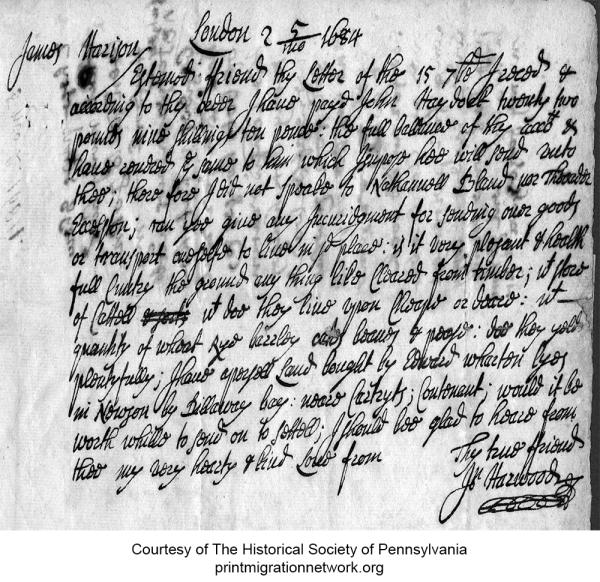 London 2 5/mo 1684
James Harison
Estemed friend thy Letter of the 15 7th I reced &
according to thy order I have payd John Haydock twenty two
pounds nine shillings ten pence: the full ballance of thy acct &
have rendred ye same to him which I supose hee will send unto
thee; there fore I did not speake to Nathannell Bland nor Theoder
Eccleston; can you give any Incuridgment for sending over goods
or transport onesselfe to live in ye place: is it very plesant & health
full Cuntry the ground any thing like Cleared from timber; wt store
of Cattell wt doe they live upon Cheape or deare: wt
quantity of wheat Rye barley oates beanes & pease: doe they yeld
plentyfully; I have a persell Land bought by Edward wharton lyes
in by Dillaway bay: neare Contenent; would it be
worth while to send on to settell; I should bee glad to heare from
thee my very hearty & kind Love from
Thy true friend
Jn Harwood
Courtesy of The Historical Society of Pennsylvania
printmigrationnetwork.org